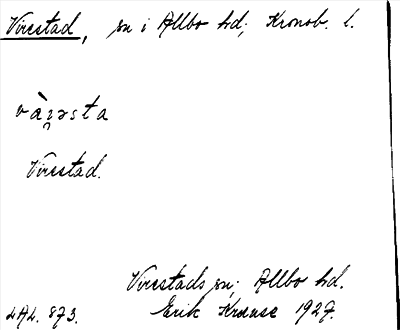 Virestad, sn i Allbo hd; Kronob. l.
vàꞮ̯ǝsta
Virestad.
Virestads sn; Allbo hd.
Erik Krause 1927.
LAL. 873.